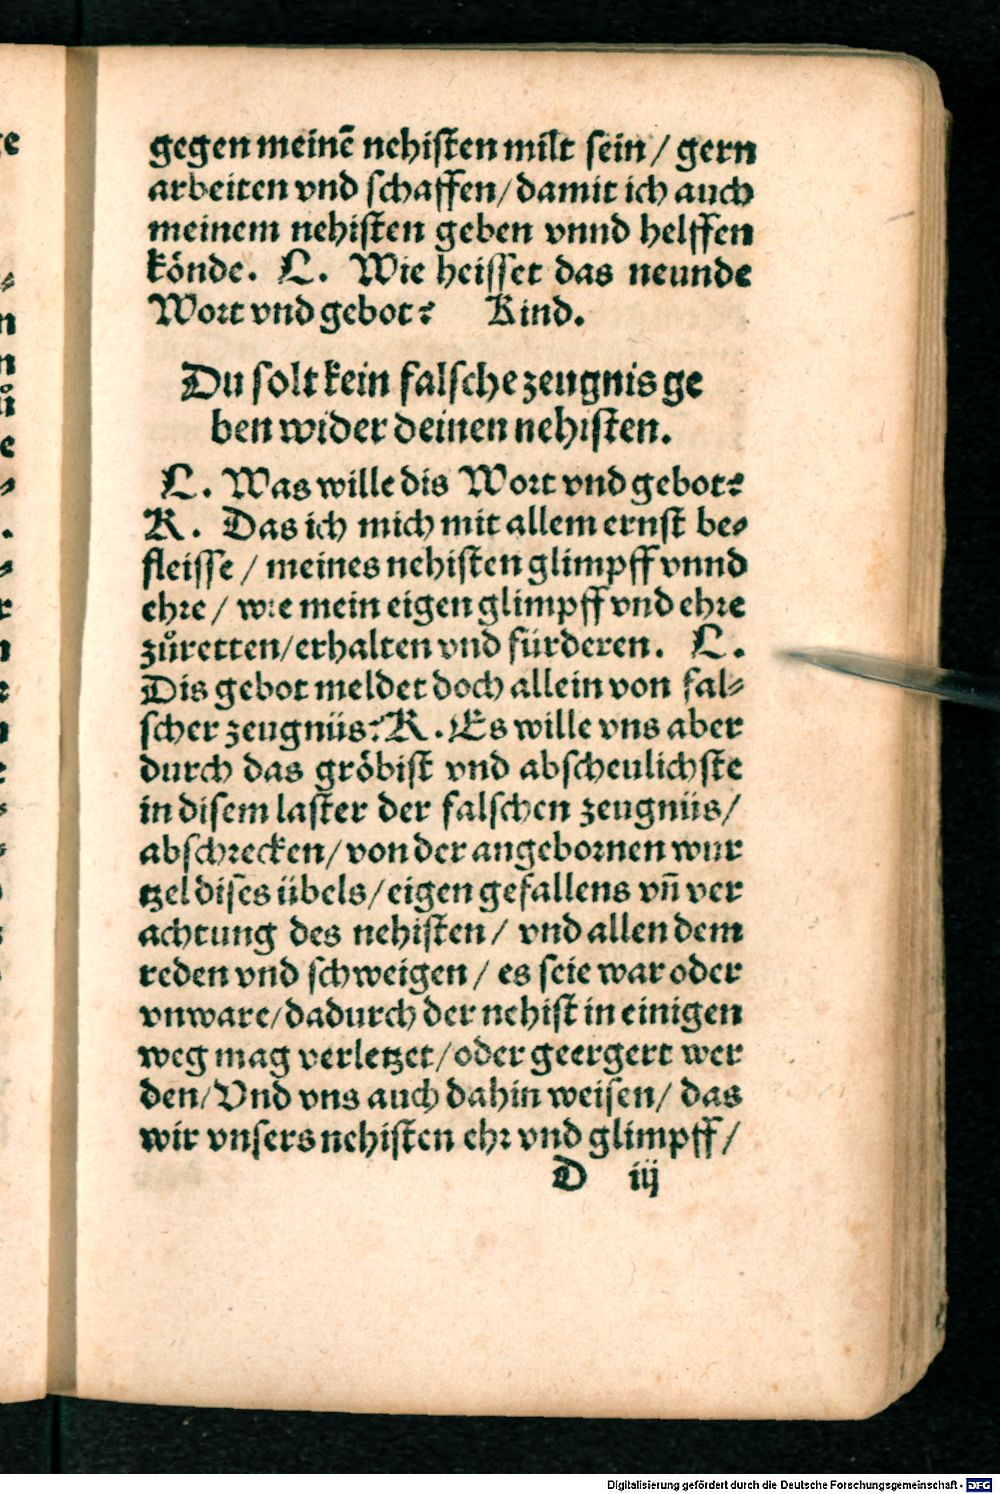 gegen meinē nehisten milt sein / gern
arbeiten vnd schaffen / damit ich auch
meinem nehisten geben vnnd helffen
koͤnde. L. Wie heisset das neunde
Wort vnd gebot? Kind.
Du solt kein falsche zeugnis ge
ben wider deinen nehisten.
L. Was wille dis Wort vnd gebot?
K. Das ich mich mit allem ernst be⸗
fleisse / meines nehisten glimpff vnnd
ehre / wie mein eigen glimpff vnd ehre
zůretten / erhalten vnd fürderen. L.
Dis gebot meldet doch allein von fal⸗
scher zeugnüs? K. Es wille vns aber
durch das groͤbist vnd abscheulichste
in disem laster der falschen zeugnüs /
abschrecken / von der angebornen wur
tzel dises übels / eigen gefallens vñ ver
achtung des nehisten / vnd allen dem
reden vnd schweigen / es seie war oder
vnware / dadurch der nehist in einigen
weg mag verletzet / oder geergert wer
den / Vnd vns auch dahin weisen / das
wir vnsers nehisten ehr vnd glimpff /
D iij
Digitalisierung gefördert durch die Deutsche Forschungsgemeinschaft - DFG